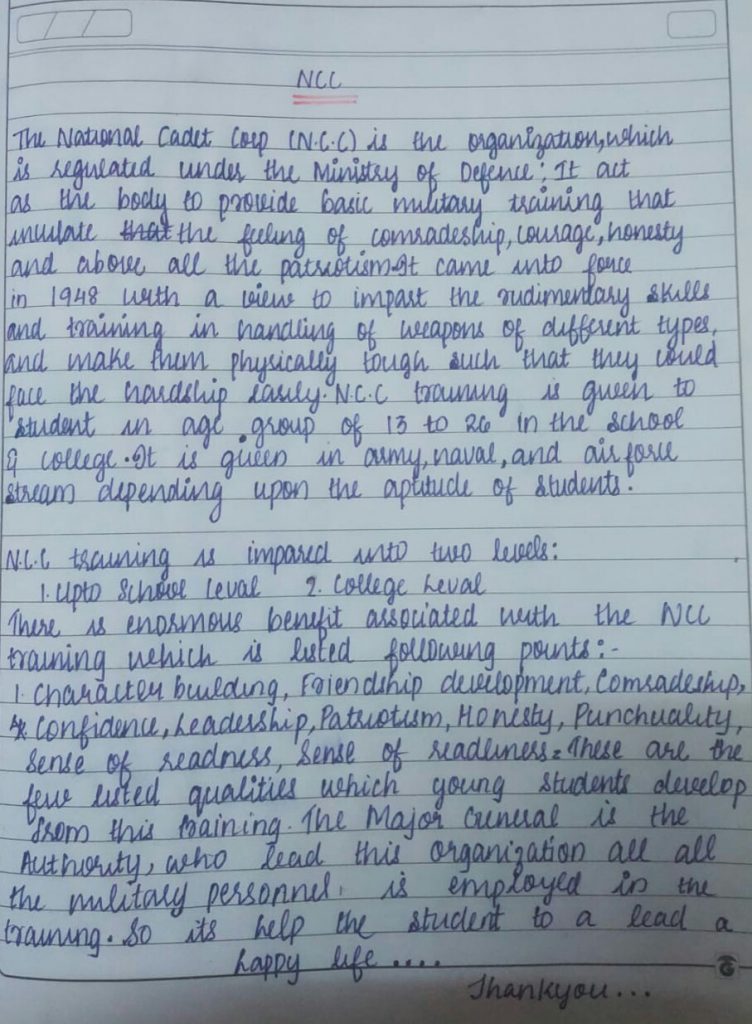 NCC
The National Cadet Corp (N.C.C) is the organization, which
is regulated under the Ministry of Defence; It act
as the body to provide basic military training that
inculate that the feeling of comradeship, courage, honesty
and above all the patriotism. It came into force
in 1948 with a view to impart the rudimentary skills
and training in handling of weapons of different types,
and make them physically tough such that they could
face the hardship easily. N.C.C training is given to
student in age group of 13 to 26 in the school
& college. It is given in army, naval, and air force
stream depending upon the aptitude of students.
N.C.C training is impared into two levels:
1. Upto School Leval 2. College Leval
There is enormous benefit associated with the NCC
training which is listed following points:-
1. Character building, Friendship development, Comradeship,
Confidence, Leadership, Patriotism, Honesty, Punchuality,
Sense of readness, Sense of readiness. These are the
few listed qualities which young students develop
from this training. The Major General is the
Authority, who lead this organization all all
the military personnel. is employed in the
training. So its help the student to a lead a
happy life ....
Thankyou...